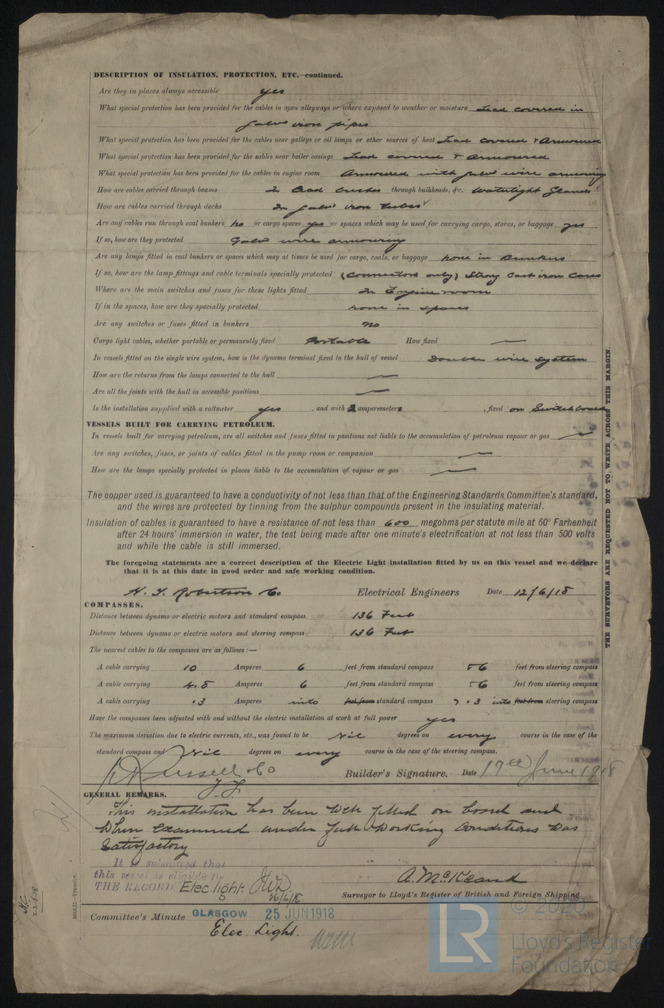 DESCRIPTION OF INSULATION, PROTECTION, ETC.—continued.
Are they in places always accessible yes
What special protection has been provided for the cables in open alleyways or where exposed to weather or moisture Lead covered in
galvd iron pipes
What special protection has been provided for the cables near galleys or oil lamps or other sources of heat Lead covered & Armoured
What special protection has been provided for the cables near boiler casings Lead covered & Armoured
What special protection has been provided for the cables in engine room Armoured with galvd wire armouring
How are cables carried through beams In Lead bushes through bulkheads, &c. Watertight Glands
How are cables carried through decks In galvd iron tubes
Are any cables run through coal bunkers no or cargo spaces yes or spaces which may be used for carrying cargo, stores, or baggage yes
If so, how are they protected Galvd wire armouring
Are any lamps fitted in coal bunkers or spaces which may at times be used for cargo, coals, or baggage none in Bunkers
If so, how are the lamp fittings and cable terminals specially protected (Connectors only) Strong Cast iron Cases
Where are the main switches and fuses for these lights fitted In Engine room
If in the spaces, how are they specially protected none in spaces
Are any switches or fuses fitted in bunkers no
Cargo light cables, whether portable or permanently fixed Portable How fixed —
In vessels fitted on the single wire system, how is the dynamo terminal fixed to the hull of vessel Double wire system
How are the returns from the lamps connected to the hull —
Are all the joints with the hull in accessible positions —
Is the installation supplied with a voltmeter yes , and with 2 amperemeters , fixed on Switchboard
VESSELS BUILT FOR CARRYING PETROLEUM.
In vessels built for carrying petroleum, are all switches and fuses fitted in positions not liable to the accumulation of petroleum vapour or gas —
Are any switches, fuses, or joints of cables fitted in the pump room or companion —
How are the lamps specially protected in places liable to the accumulation of vapour or gas —
The copper used is guaranteed to have a conductivity of not less than that of the Engineering Standards Committee's standard,
and the wires are protected by tinning from the sulphur compounds present in the insulating material.
Insulation of cables is guaranteed to have a resistance of not less than 600 megohms per statute mile at 60° Farhenheit
after 24 hours' immersion in water, the test being made after one minute's electrification at not less than 500 volts
and while the cable is still immersed.
The foregoing statements are a correct description of the Electric Light installation fitted by us on this vessel and we declare
that it is at this date in good order and safe working condition.
Robertson & Co Electrical Engineers Date 12/6/18
COMPASSES.
Distance between dynamo or electric motors and standard compass 136 Feet
Distance between dynamo or electric motors and steering compass 136 Feet
The nearest cables to the compasses are as follows:—
A cable carrying 10 Amperes 6 feet from standard compass 56 feet from steering compass
A cable carrying 4.5 Amperes 6 feet from standard compass 56 feet from steering compass
A cable carrying .3 Amperes into feet from standard compass .3 into feet from steering compass
Have the compasses been adjusted with and without the electric installation at work at full power yes
The maximum deviation due to electric currents, etc., was found to be Nil degrees on every course in the case of the
standard compass and Nil degrees on every course in the case of the steering compass.
Russell & Co Builder's Signature. Date 17th June 1918
GENERAL REMARKS.
This installation has been well fitted on board and
when examined under full working conditions was
satisfactory
It is submitted that
this vessel is eligible for
THE RECORD Elec. light 26/6/18
Surveyor to Lloyd's Register of British and Foreign Shipping.
Committee's Minute GLASGOW 25 JUN 1918
Elec. Light.
THE SURVEYORS ARE REQUESTED NOT TO WRITE ACROSS THIS MARGIN
LR
Lloyd's Register
Foundation